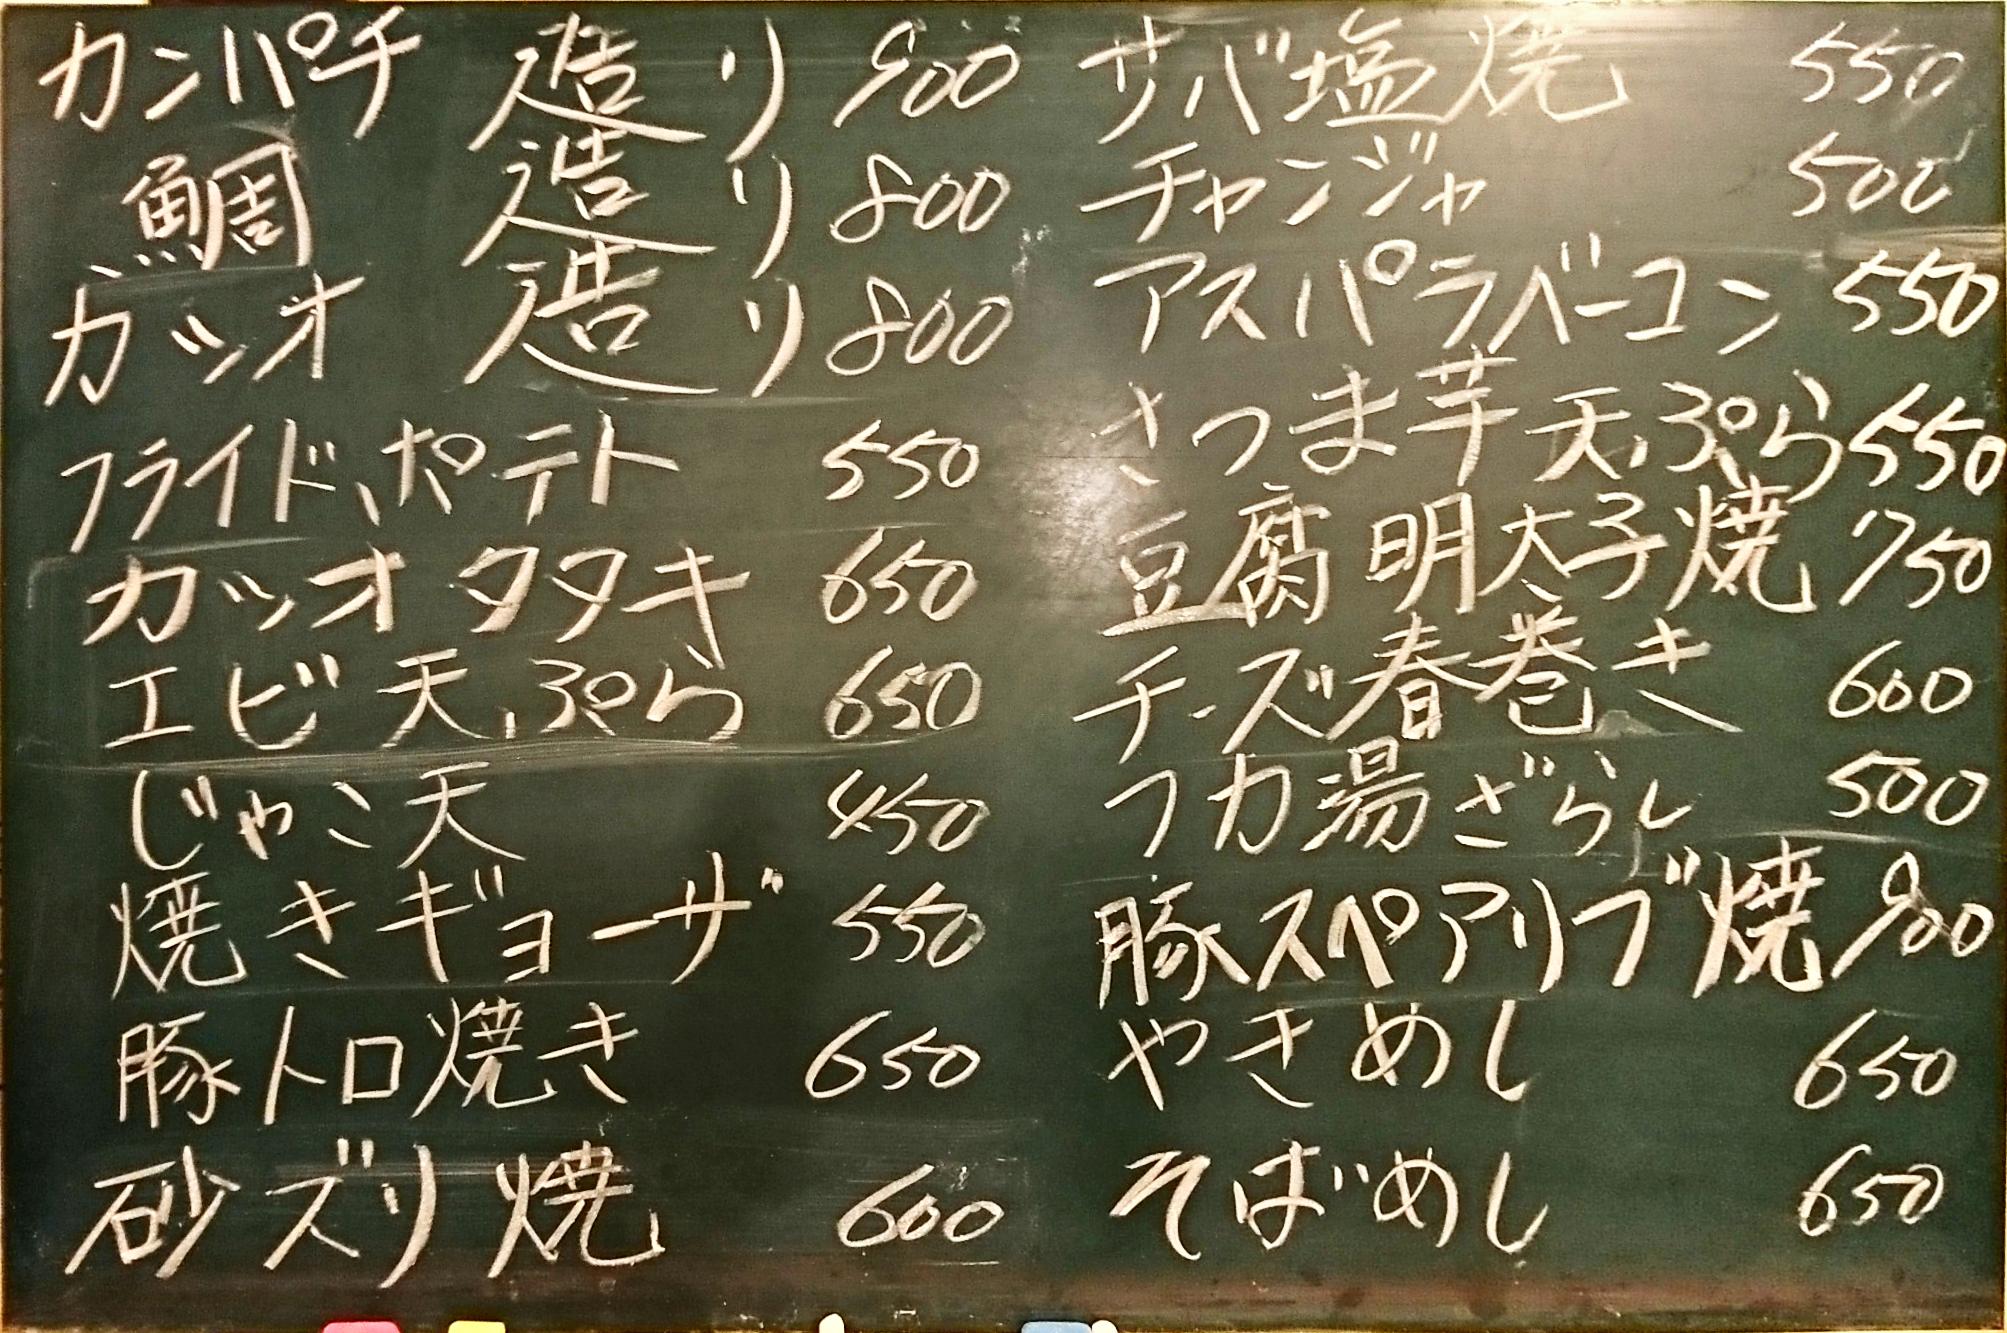 カンパチ 造り 900
鯛 造り 800
カツオ 造り 800
フライドポテト 550
カツオタタキ 650
エビ天ぷら 650
じゃこ天 450
焼きギョーザ 550
豚トロ焼き 650
砂ズリ焼 600
サバ塩焼 550
チャンジャ 500
アスパラベーコン 550
さつま芋天ぷら 550
豆腐明太子焼 750
チーズ春巻き 600
フカ湯ざらし 500
豚スペアリブ焼 900
やきめし 650
そばめし 650